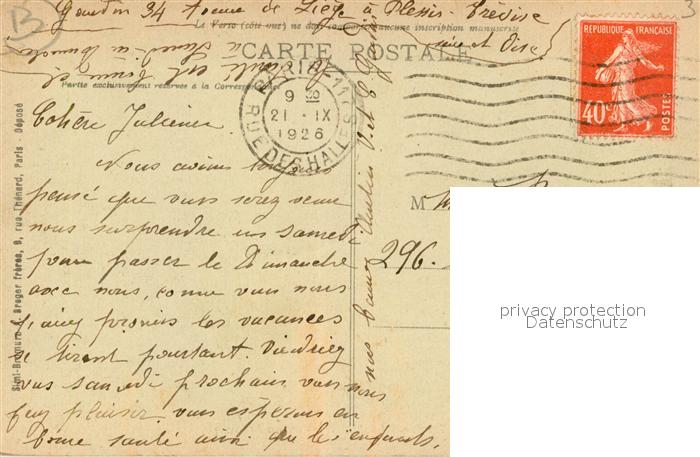 Gourdin 34 Avenue de Liège à Plessis-Trévise
Seine et Oise
Le Verso (côté vue) ne
aucune inscription manuscrite
CARTE POSTALE
la santé est bonne et
Partie exclusivement réservée à la Correspondance
RÉPUBLIQUE FRANÇAISE
40c
POSTES
PARIS-11
9
21 - IX
1926
RUE DES HALLES
Chère Julienne
Nous avions toujours
pensé que vous serez venue
nous surprendre un samedi
pour passer le Dimanche
avec nous, comme vous nous
l'aviez promis les vacances
se tirent pourtant. Viendriez
vous samedi prochain vous nous
fery plaisir vous espérons en
bonne santé ainsi que les enfants.
nos bons
M
296
Simi-Bromure A. Breger frères, 9, rue Thénard, Paris - Déposé
B
privacy protection
Datenschutz